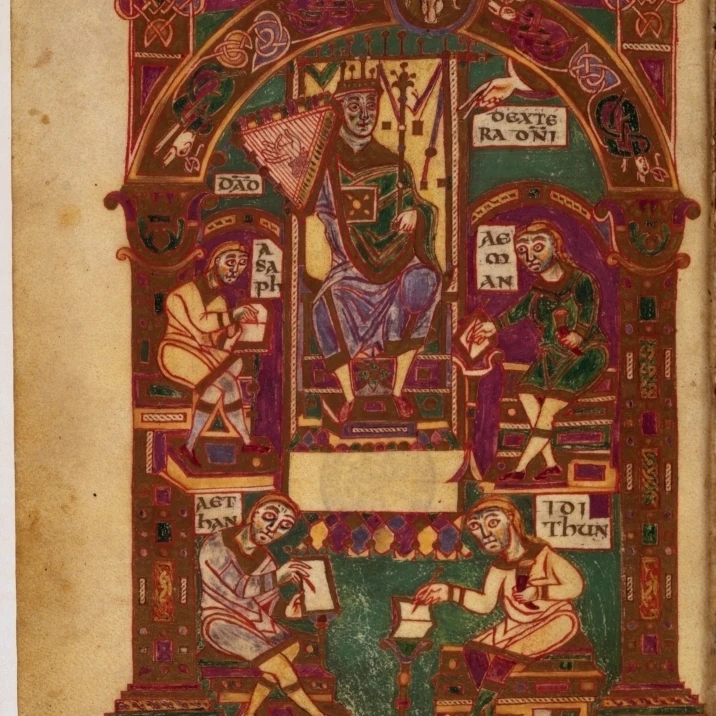 DEXTE
RA DÑI
DAD
A
SA
ph
AE
M
AN
AET
hAN
IDI
ThUN